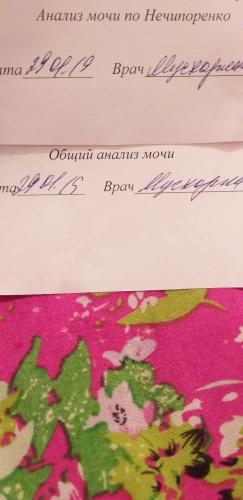 Анализ мочи по Нечипоренко
ата 29.01.19 Врач
Общий анализ мочи
та 29.01.15 Врач